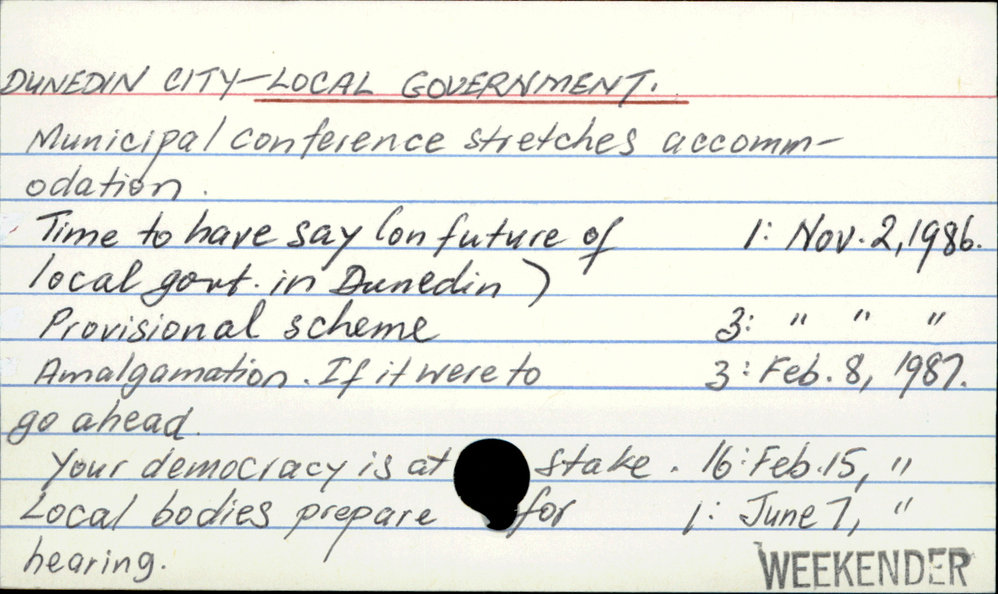 DUNEDIN CITY—LOCAL GOVERNMENT.
Municipal conference stretches accomm-
odation.
Time to have say (on future of 1: Nov. 2, 1986.
local govt. in Dunedin)
Provisional scheme 3: " " "
Amalgamation. If it were to 3: Feb. 8, 1987.
go ahead.
Your democracy is at stake. 16: Feb. 15, "
Local bodies prepare for 1: June 7, "
hearing.
WEEKENDER